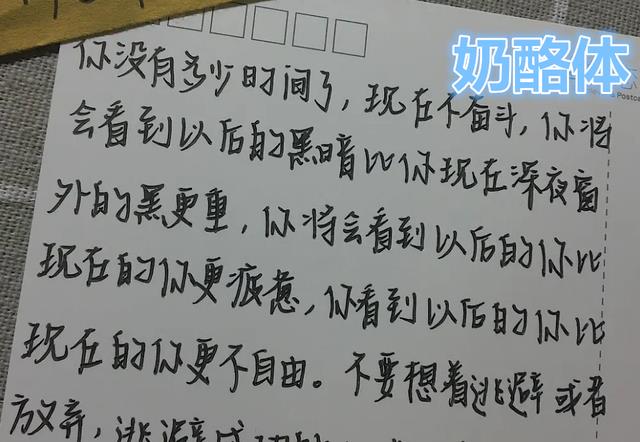 奶酪体
Postca
你没有多少时间了，现在不奋斗，你将
会看到以后的黑暗比你现在深夜窗
外的黑更重，你将会看到以后的你比
现在的你更疲惫，你看到以后的你比
现在的你更不自由。不要想着逃避或者
放弃，逃避